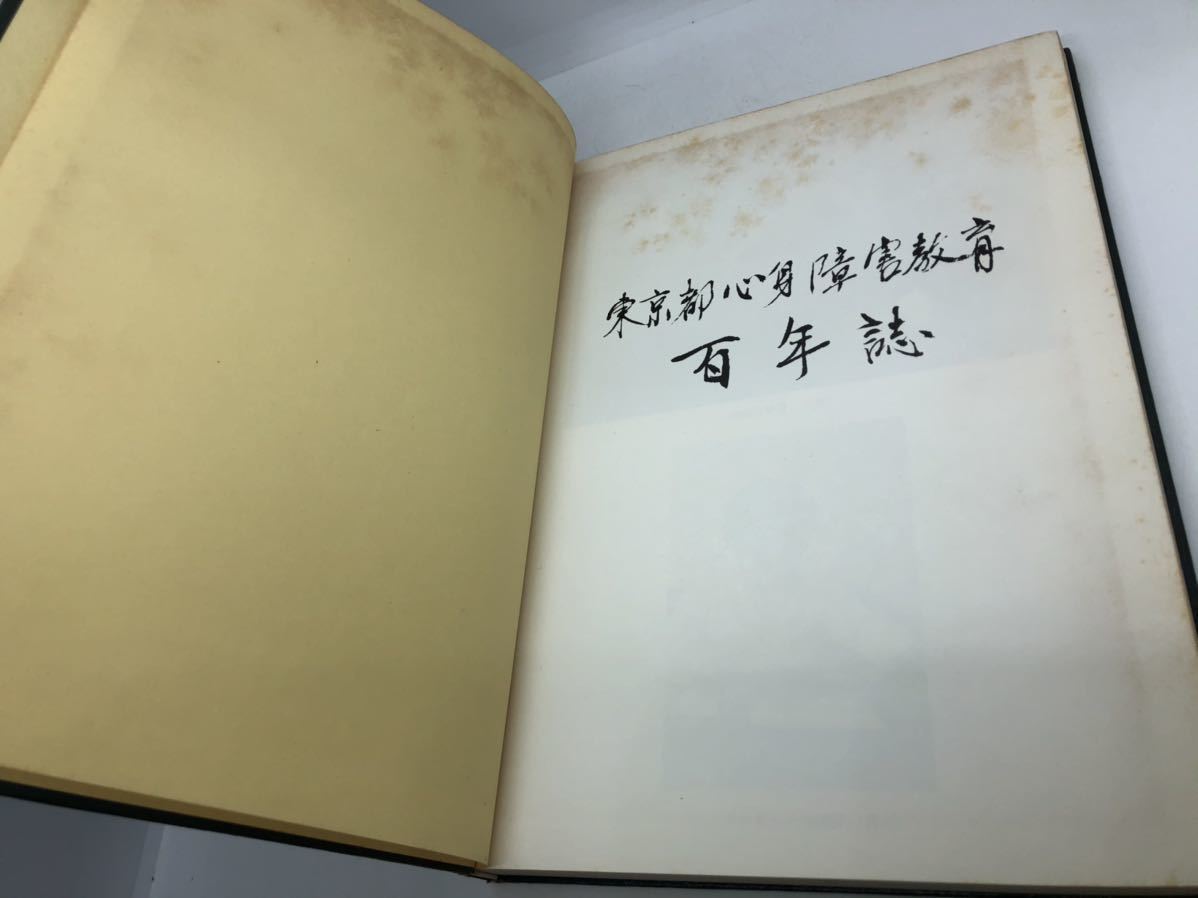 東京都心身障害教育
百年誌